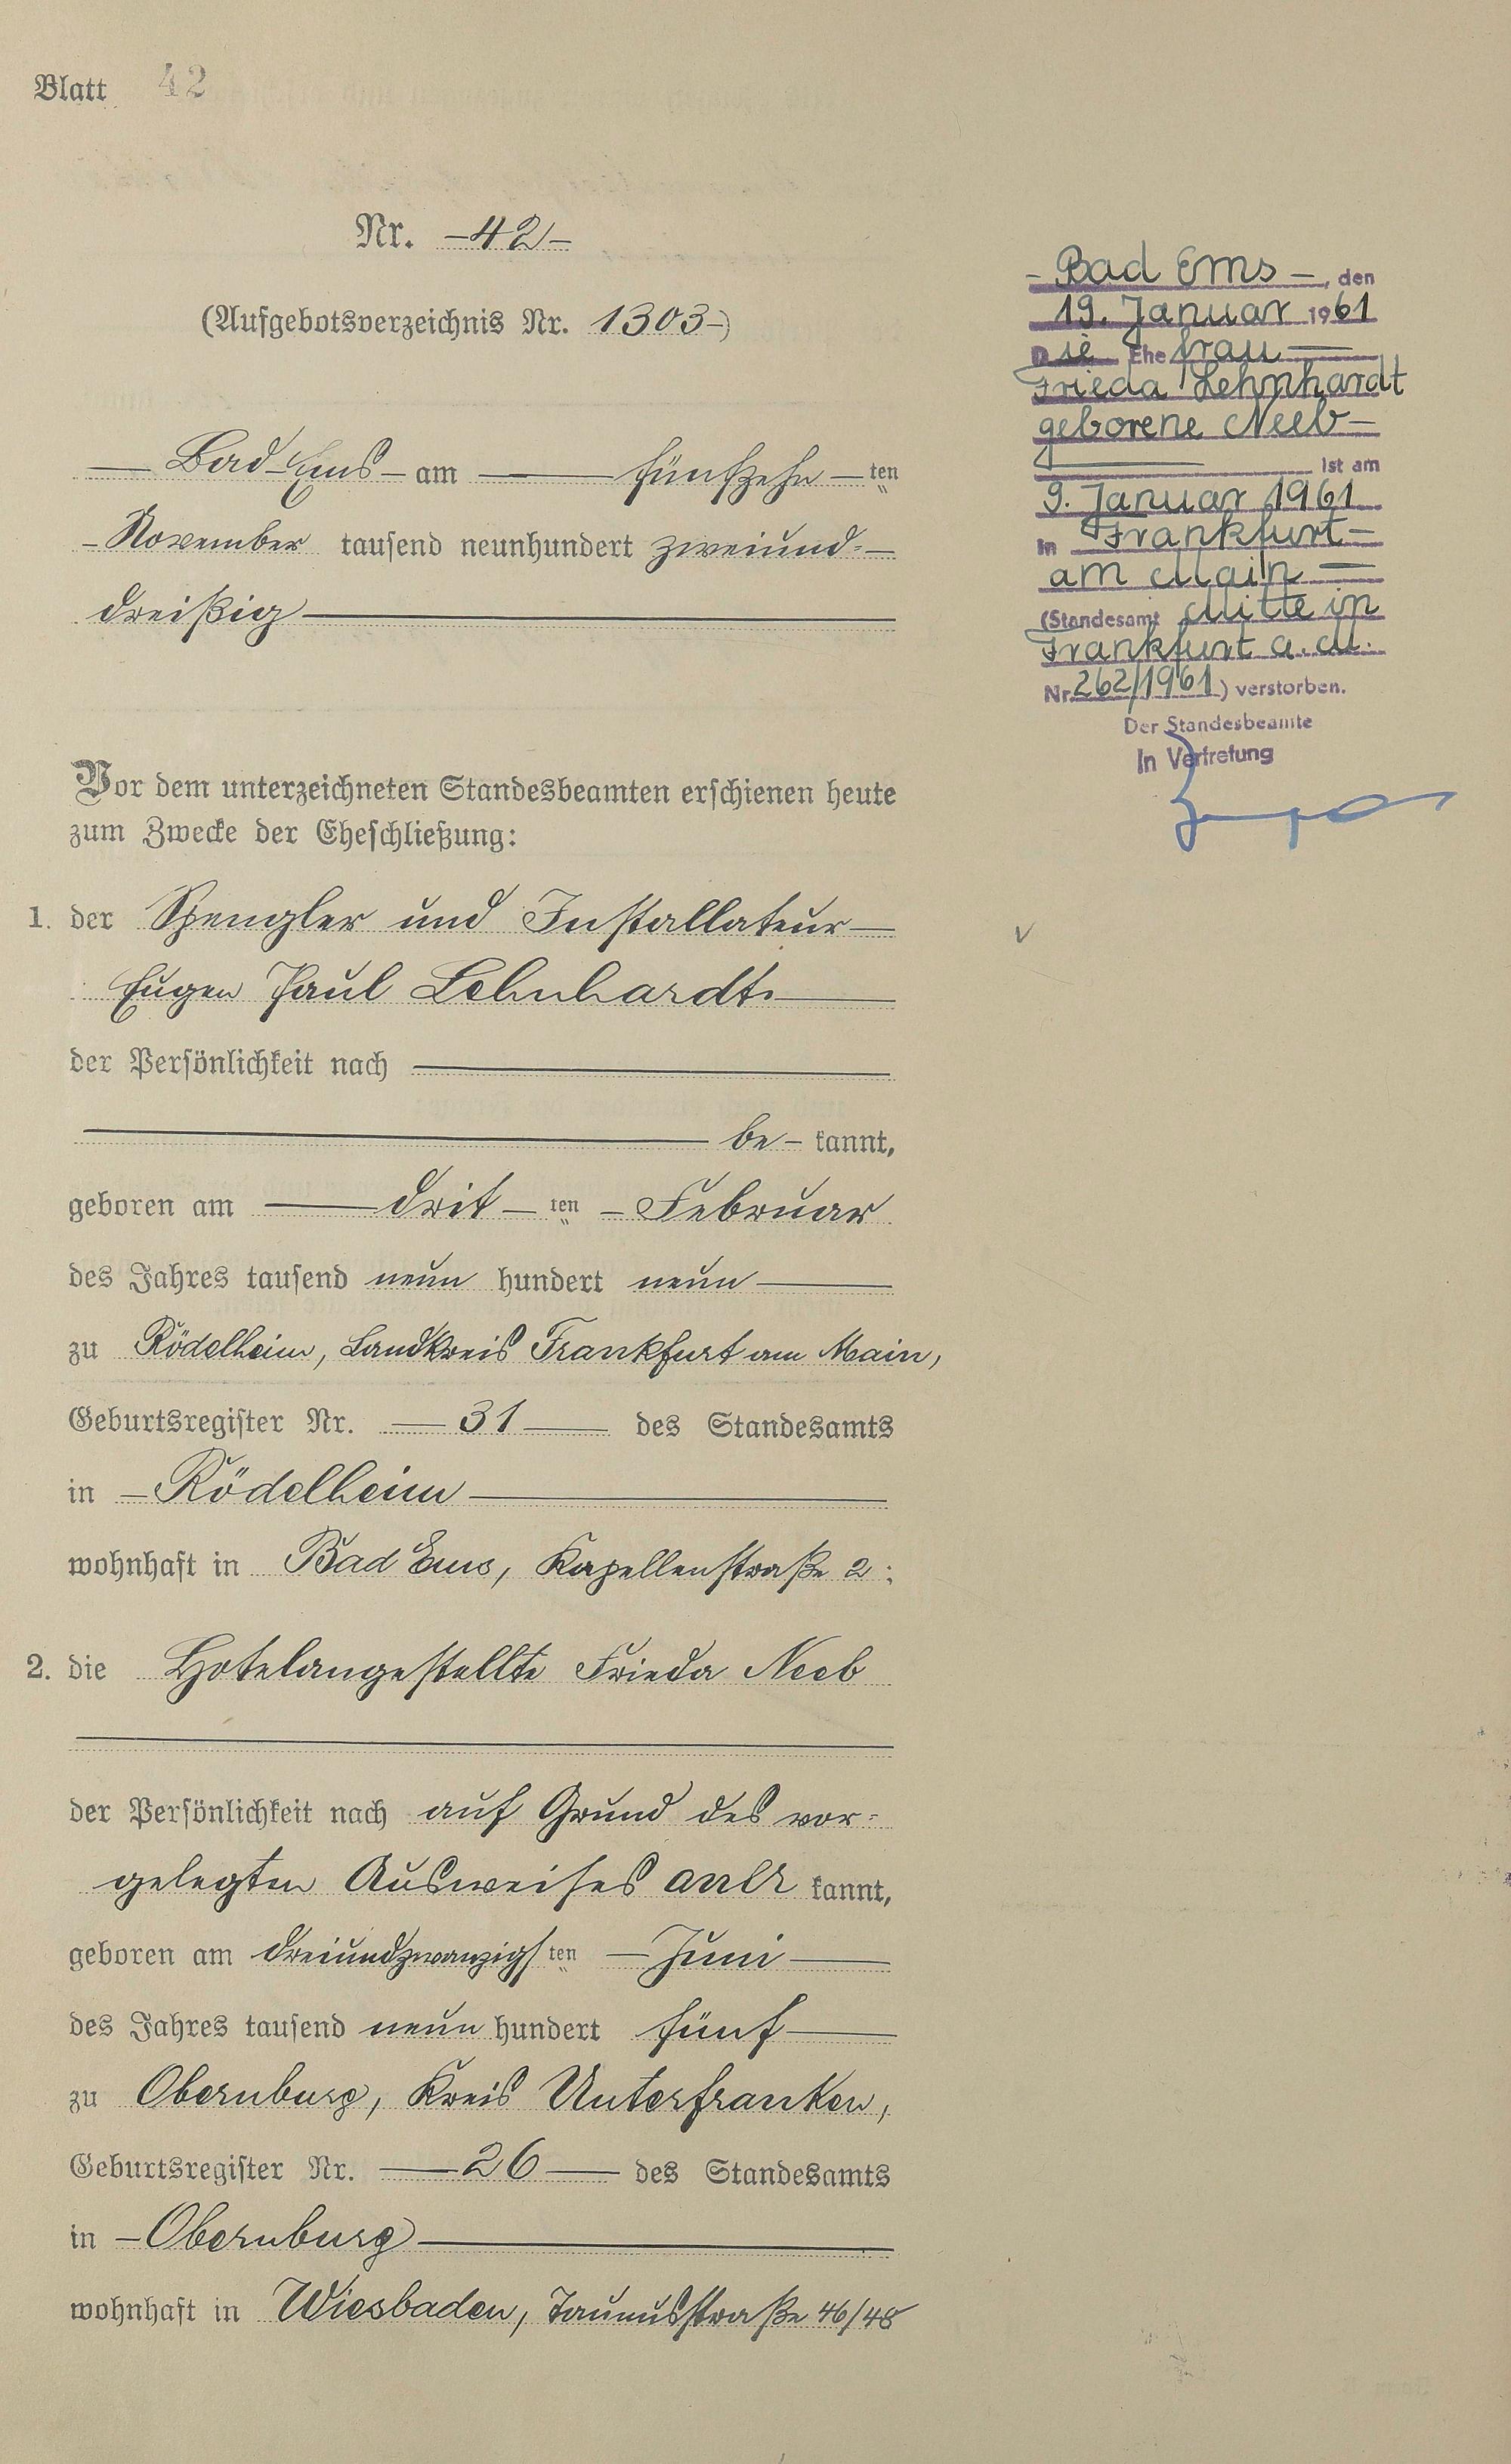 Blatt 42
Nr. -42-
(Aufgebotsverzeichnis Nr. 1303-)
Bad Ems - am fünfzehn - ten
- November tausend neunhundert zweiund=
dreißig
Vor dem unterzeichneten Standesbeamten erschienen heute
zum Zwecke der Eheschließung:
1. der Spengler und Installateur
Eugen Paul Lehnhardt
der Persönlichkeit nach
be - kannt,
geboren am drit - ten - Februar
des Jahres tausend neun hundert neun
zu Rödelheim, Landkreis Frankfurt am Main,
Geburtsregister Nr. 31 des Standesamts
in - Rödelheim
wohnhaft in Bad Ems, Kapellenstraße 2;
2. die Hotelangestellte Frieda Neeb
der Persönlichkeit nach auf Grund des vor=
gelegten Ausweises aner kannt,
geboren am dreiundzwanzigsten - Juni
des Jahres tausend neun hundert fünf
zu Obernburg, Kreis Unterfranken,
Geburtsregister Nr. 26 des Standesamts
in - Obernburg
wohnhaft in Wiesbaden, Taunusstraße 46/48
- Bad Ems -, den
19. Januar 1961
Die Ehefrau
Frieda Lehnhardt
geborene Neeb -
ist am
9. Januar 1961
in Frankfurt -
am Main
(Standesamt Mitte in
Frankfurt a.M.
Nr. 262/1961) verstorben.
Der Standesbeamte
In Vertretung